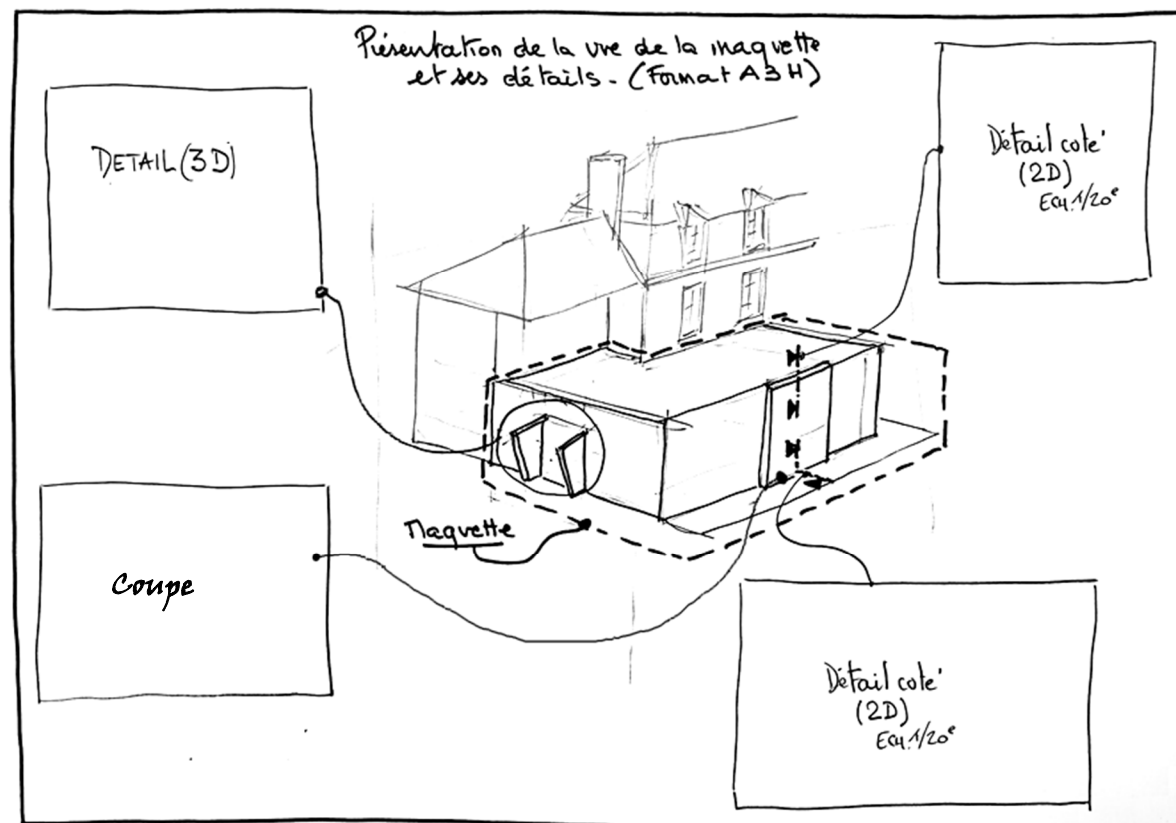 Présentation de la vue de la maquette
et ses détails - (Format A3H)
DETAIL (3D)
Détail coté
(2D)
Ech. 1/20e
Maquette
Coupe
Détail coté
(2D)
Ech. 1/20e